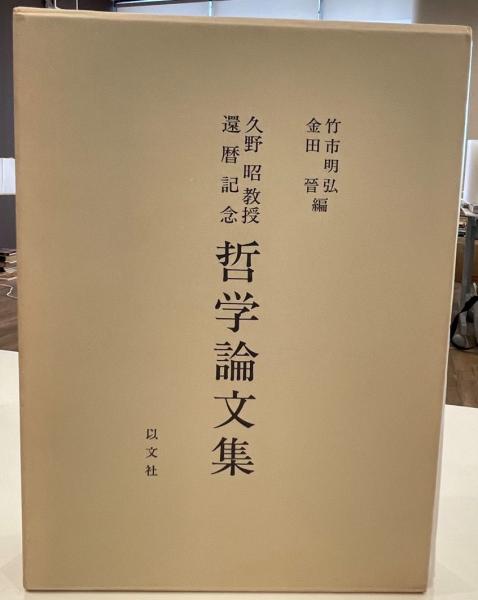 竹市明弘
金田 晉 編
久野 昭教授
還暦記念
哲学論文集
以文社